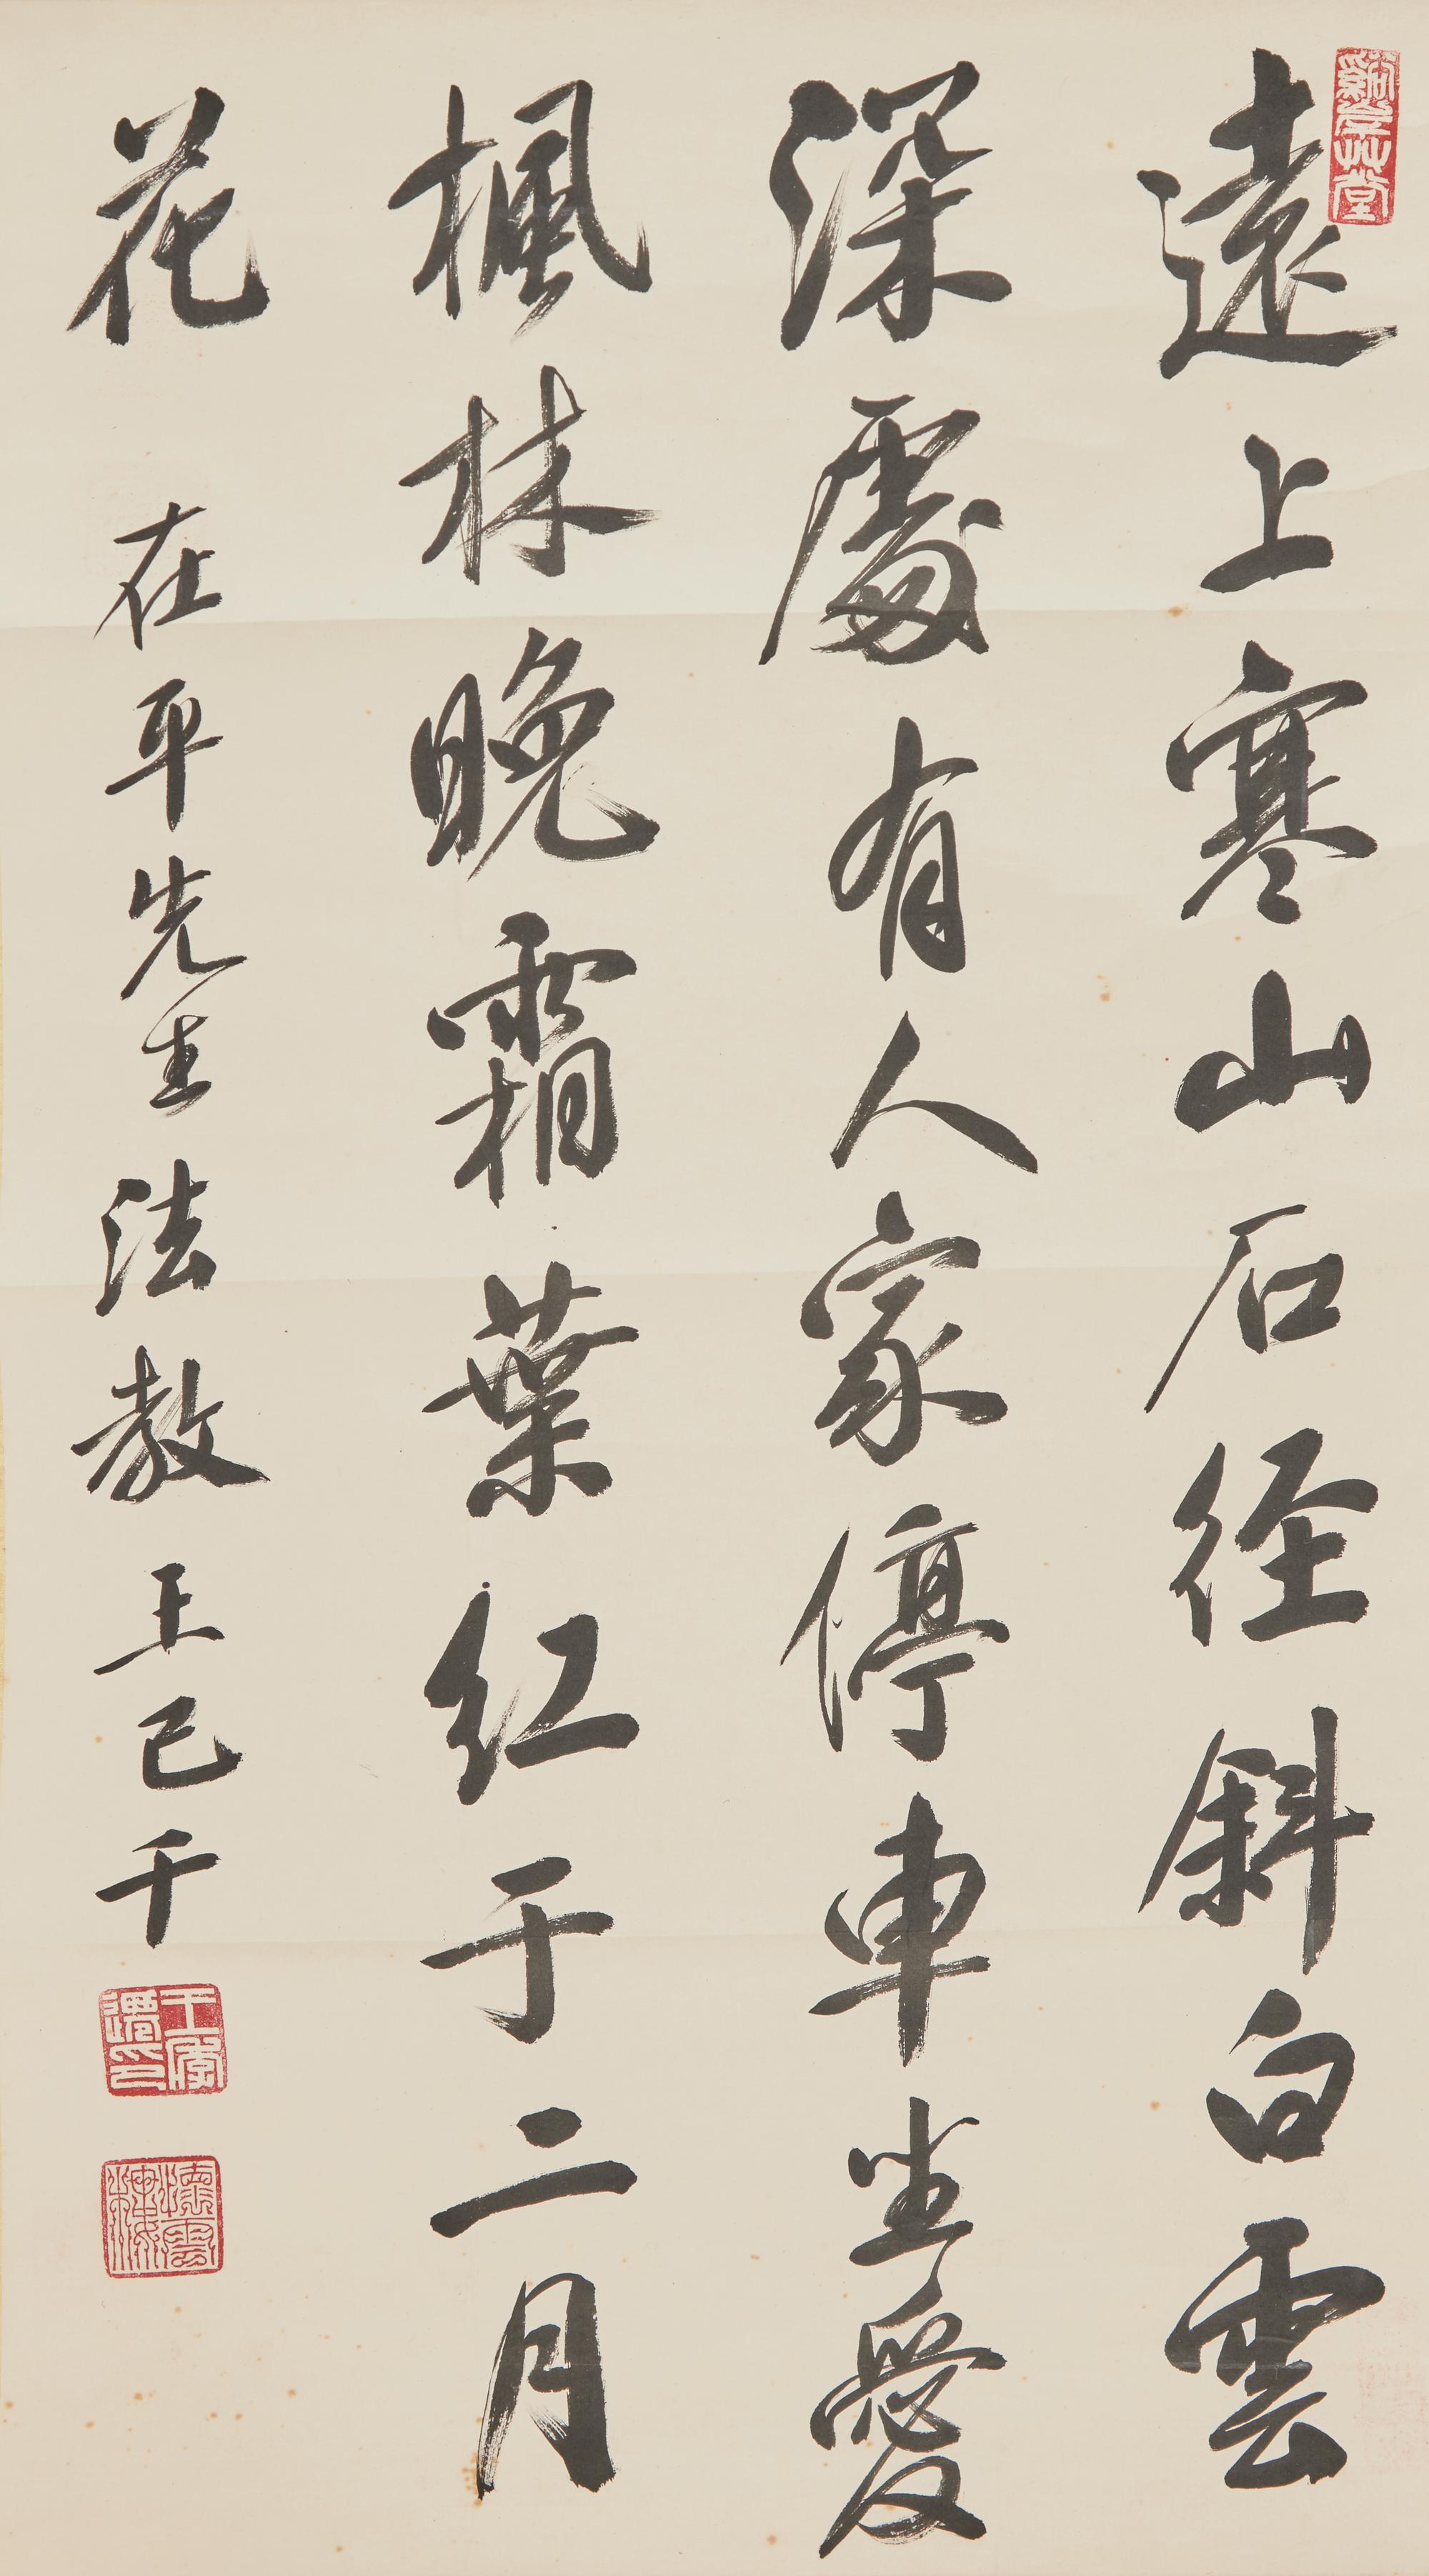 遠上寒山石径斜白雲
深處有人家停車坐愛
楓林晚霜葉红于二月
花 在平先生法教 王己千